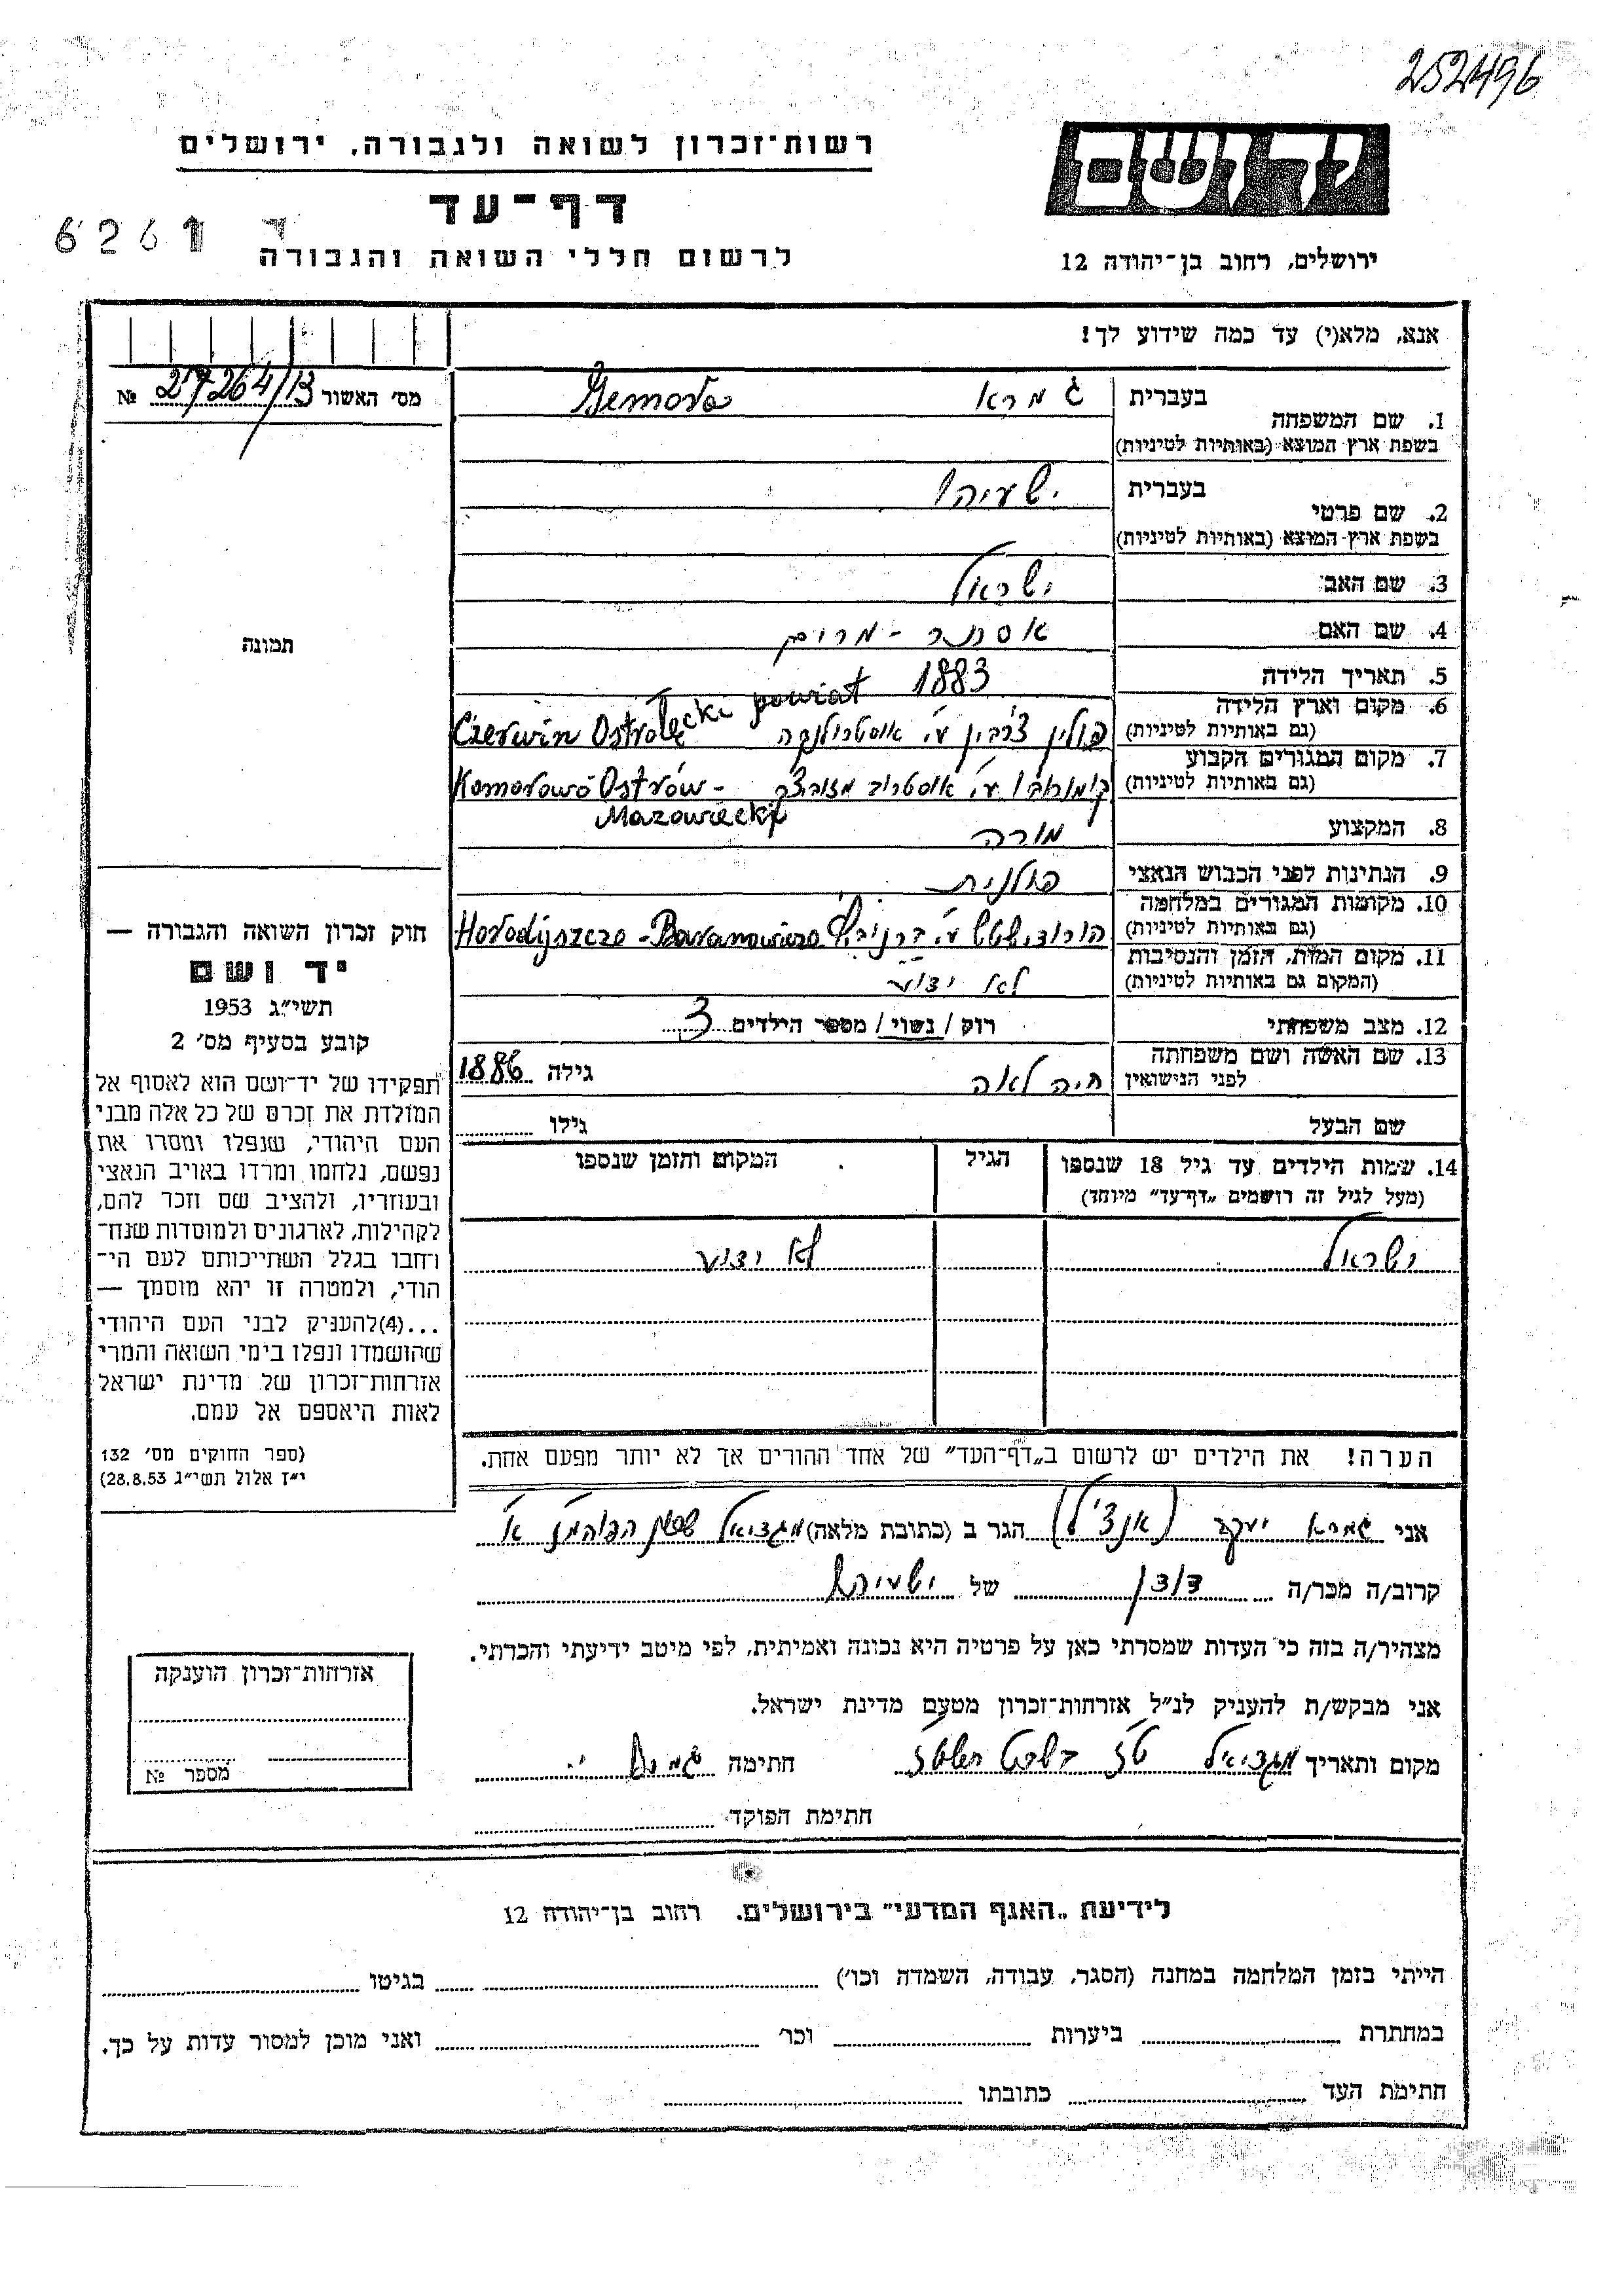 252496
יד ושם
רשות־זכרון לשואה ולגבורה, ירושלים
דף־עד
6261 ד
לרשום חללי השואה והגבורה
ירושלים, רחוב בן־יהודה 12
אנא, מלא(י) עד כמה שידוע לך!
מס׳ האשור 27264/13 №
1. שם המשפחה
בעברית גמרא Gemora
בשפת ארץ המוצא (באותיות לטיניות)
2. שם פרטי
בעברית ישעיהו
בשפת ארץ המוצא (באותיות לטיניות)
3. שם האב ישראל
4. שם האם אסתר - מרים
תמונה
5. תאריך הלידה 1883
6. מקום וארץ הלידה
(גם באותיות לטיניות) פולין צ׳רבין ע״י אוסטרולנקה Czerwin Ostrołęcki powiat
7. מקום המגורים הקבוע
(גם באותיות לטיניות) קומורובו ע״י אוסטרוב מזובצק Komorowo Ostrów - Mazowiecki
8. המקצוע מורה
9. הנתינות לפני הכבוש הנאצי פולנית
10. מקומות המגורים במלחמה
(גם באותיות לטיניות) Horodyszcze - Baranowicze
11. מקום המות, הזמן והנסיבות
(המקום גם באותיות לטיניות) לא ידוע
12. מצב משפחתי רוק / נשוי / מספר הילדים 3
13. שם האשה ושם משפחתה
לפני הנישואין חיה לאה גילה 1886
שם הבעל גילו
14. שמות הילדים עד גיל 18 שנספו הגיל המקום והזמן שנספו
(מעל לגיל זה רושמים „דף־עד” מיוחד)
ישראל לא ידוע
הערה! את הילדים יש לרשום ב„דף־העד” של אחד ההורים אך לא יותר מפעם אחת.
חוק זכרון השואה והגבורה —
יד ושם
תשי״ג 1953
קובע בסעיף מס׳ 2
תפקידו של יד־ושם הוא לאסוף אל
המולדת את זכרם של כל אלה מבני
העם היהודי, שנפלו ומסרו את
נפשם, נלחמו ומרדו באויב הנאצי
ובעוזריו, ולהציב שם וזכר להם,
לקהילות, לארגונים ולמוסדות שנח־
רחבו בגלל השתייכותם לעם הי־
הודי, ולמטרה זו יהא מוסמך —
...(4) להעניק לבני העם היהודי
שהושמדו ונפלו בימי השואה והמרי
אזרחות־זכרון של מדינת ישראל
לאות היאספם אל עמם.
(ספר החוקים מס׳ 132
י״ז אלול תשי״ג 28.8.53)
אני גמרא יעקב (אנצ׳ל) הגר ב (כתובת מלאה) מגדיאל שכון
קרוב/ה מכר/ה דודן של ישעיהו
מצהיר/ה בזה כי העדות שמסרתי כאן על פרטיה היא נכונה ואמיתית, לפי מיטב ידיעתי והכרתי.
אני מבקש/ת להעניק לנ״ל אזרחות־זכרון מטעם מדינת ישראל.
מקום ותאריך מגדיאל טז בשבט תשטז חתימה גמרא י.
חתימת הפוקד
אזרחות־זכרון הוענקה
מספר №
לידיעת „האגף המדעי” בירושלים. רחוב בן־יהודה 12
הייתי בזמן המלחמה במחנה (הסגר, עבודה, השמדה וכו׳) בגיטו
במחתרת ביערות וכו׳ ואני מוכן למסור עדות על כך.
חתימת העד כתובתו